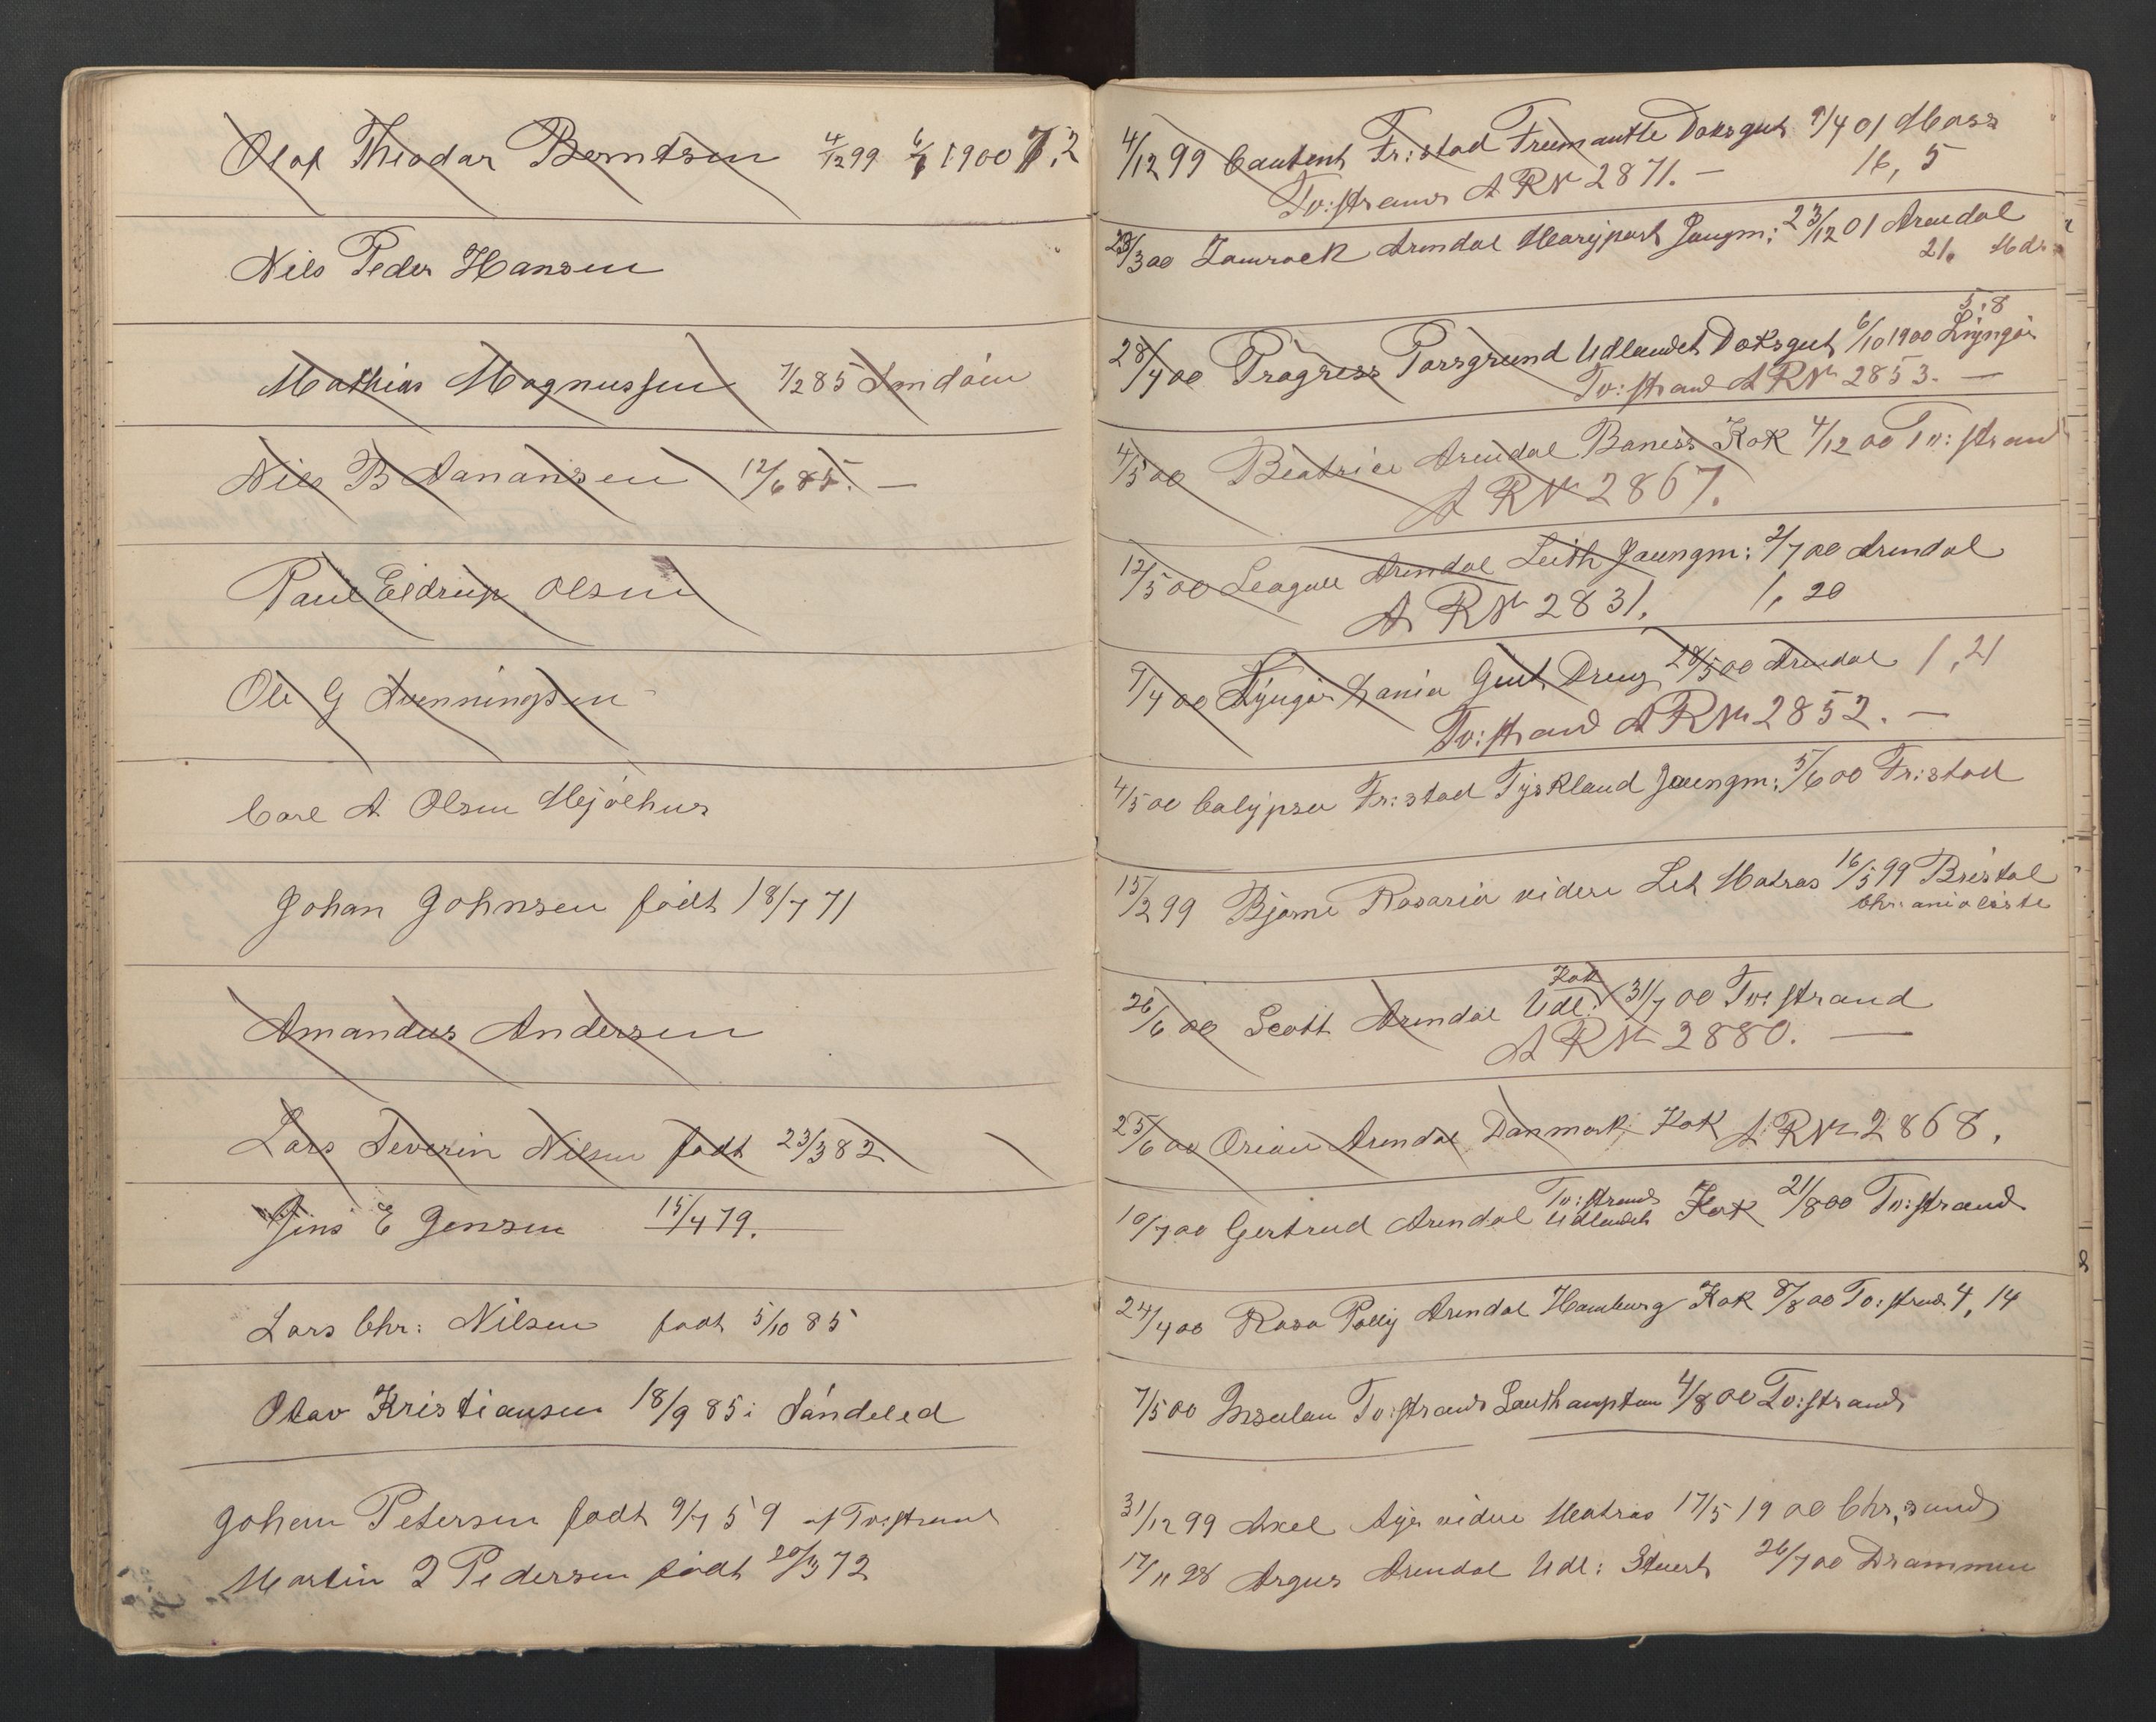 Olaf Theodor Berntsen 4/12 99 6/7 1900 7,2
Nils Peder Hansen
Mathias Magnussen 7/2 85
Nils B Aanansen 12/6 85. —
Paul Eldrup Olsen
Ole G Svenningsen
Carl A Olsen Mjølhus
Johan Johnsen født 18/7 71
Amandus Andersen
Lars Severin Nilsen født 23/3 82
Jens E Jensen 15/4 79.
Lars Chr: Nilsen født 5/10 85
Olav Kristiansen 18/9 85 i Søndeled
Johan Petersen født 9/7 59 af Tv:strand
Martin J Pedersen født 20/3 72
4/12 99 Cautent Fr:stad Freemantle Doksgut 9/4 01 Moss
Tv:strand A R Nr 2871. — 16, 5
29/3 00 Arendal Maryport Jungm: 23/12 01 Arendal
21.
5:8
28/4 00 Progress Porsgrund Udlandet Doksgut 6/10 1900 Lyngør
Tv:strand A R Nr 2853. —
4/5 00 Beatrice Arendal Kok 4/12 00 Tv:strand
A R Nr 2867.
12/5 00 Seagull Arendal Leith Jaungm: 2/7 00 Arendal
A R Nr 2831. 1, 20
7/4 00 Lyngør Gent Dreng 28/5 00 Arendal 1, 21
Tv:strand A R Nr 2852. —
4/5 00 Calypso Fr:stad Tyskland Jaungm: 5/6 00 Fr:stad
15/2 99 Bjørne Rosario videre Let Matros 16/5 99 Bristol
Chr:ania liste
Kok
26/6 00 Scott Arendal Udl: 31/7 00 Tv:strand
A R Nr 2880. —
25/6 00 Orion Arendal Danmark: Kok A R Nr 2868.
Tv:strand
10/7 00 Gertrud Arendal Udlandet Kok 21/8 00 Tv:strand
24/4 00 Rosa Polly Arendal Hamburg Kok 8/8 00 Tv:strand 4, 14
7/5 00 Insulan Tv:strand Southampton 4/8 00 Tv:strand
31/12 99 Axel videre Matros 17/5 1900 Chr,sand
17/11 98 Argus Arendal Udl: Stuert 26/7 00 Drammen